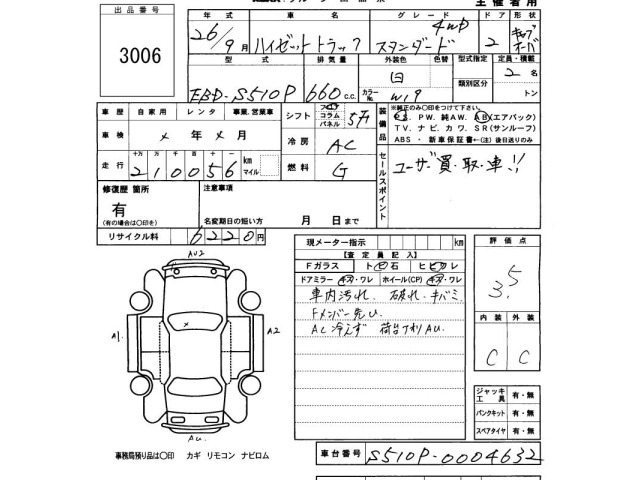 主催者用
出品番号
3006
年式 車名 グレード ドア 形状
26/9月 ハイゼットトラック スタンダード 4WD 2 キャブオーバ
型式 排気量 外装色 色替 型式指定 定員・積載
EBD-S510P 660c.c. 白 類別区分 2名
カラーNo. W19 トン
車歴 自家用 レンタ 事業、営業車
シフト フロア コラム パネル 5F
車検 メ年メ月
冷房 AC
走行 十万 万 千 百 十 一 km マイル
210056
燃料 G
装備品
※純正のみ〇印をつけて下さい。
P.S. P.W. 純AW. AB(エアバック)
T.V. ナビ. カワ. SR(サンルーフ)
ABS・新車保証書←(注)後日送りのみ
セールスポイント
ユーザー買・取・車!!
修復歴 箇所
有
(有の場合は〇印を)
注意事項
名変期日の短い方 月 日まで
リサイクル料 6220円
現メーター指示 km
【査定員記入】
Fガラス ト ビ 石 ヒビワレ
ドアミラー キズ・ワレ ホイール(CP) キズ・ワレ
車内汚れ. 破れ. キバミ
AC冷えず
評価点
3.5
内装 外装
C C
ジャッキ工具 有・無
パンクキット 有・無
スペアタイヤ 有・無
AU2
A1
A2
AU
事務局預り品は〇印 カギ リモコン ナビロム
車台番号 S510P-0004632